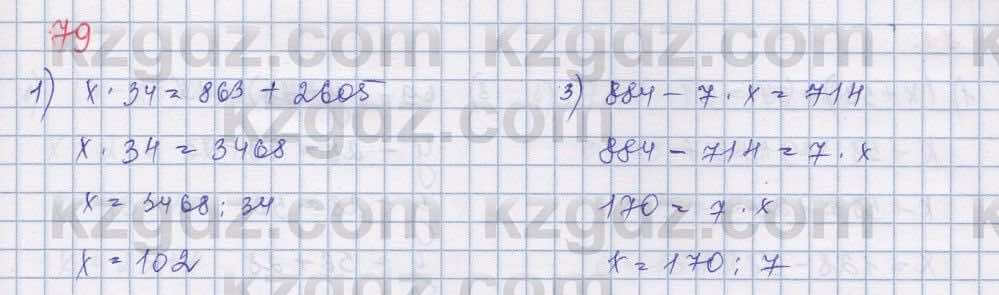 79
kzgdz.com kzgdz.com
1) x · 34 = 863 + 2605
3) 884 - 7 · x = 714
kzgdz.com
x · 34 = 3468
884 - 714 = 7 · x
kzgdz.com kzgdz.com
x = 3468 : 34
170 = 7 · x
x = 102
x = 170 : 7
kzgdz.com